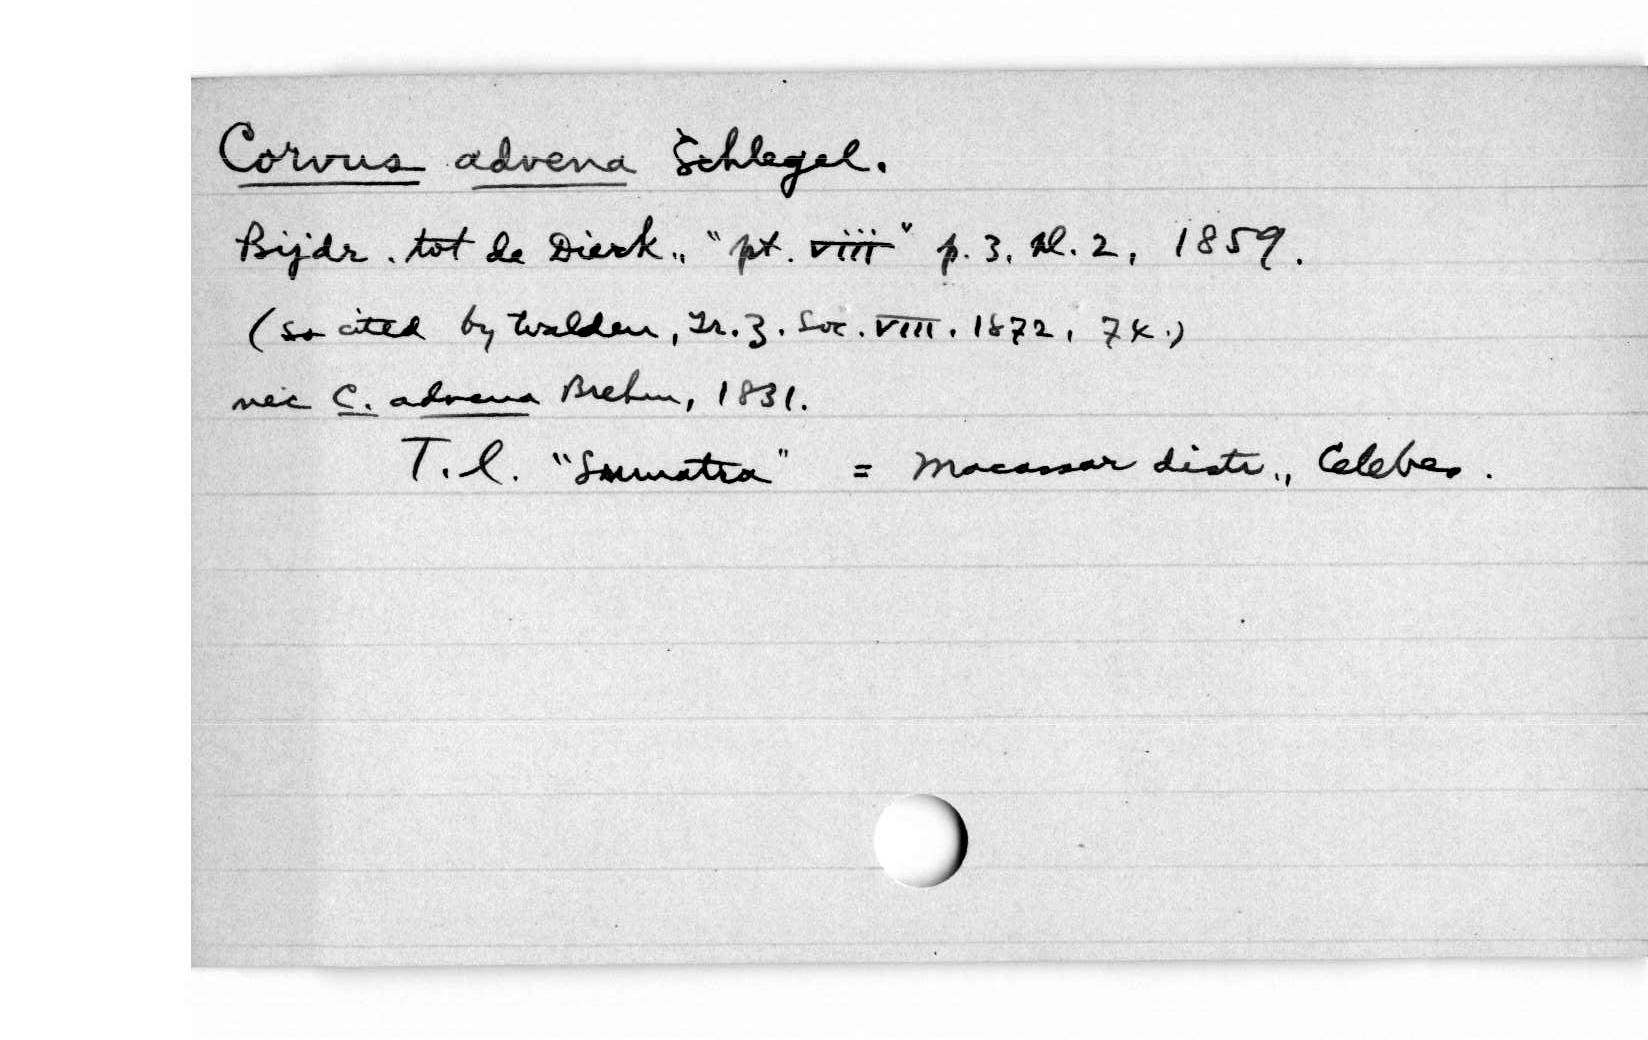 Corvus advena Schlegel.
Bijdr. tot de Dierk., "pt. viii" p. 3, pl. 2, 1859.
(so cited by Walden, Tr. Z. Soc. VIII. 1872, 74.)
nec C. advena Brehm, 1831.
T.l. "Sumatra" = Macassar distr., Celebes.